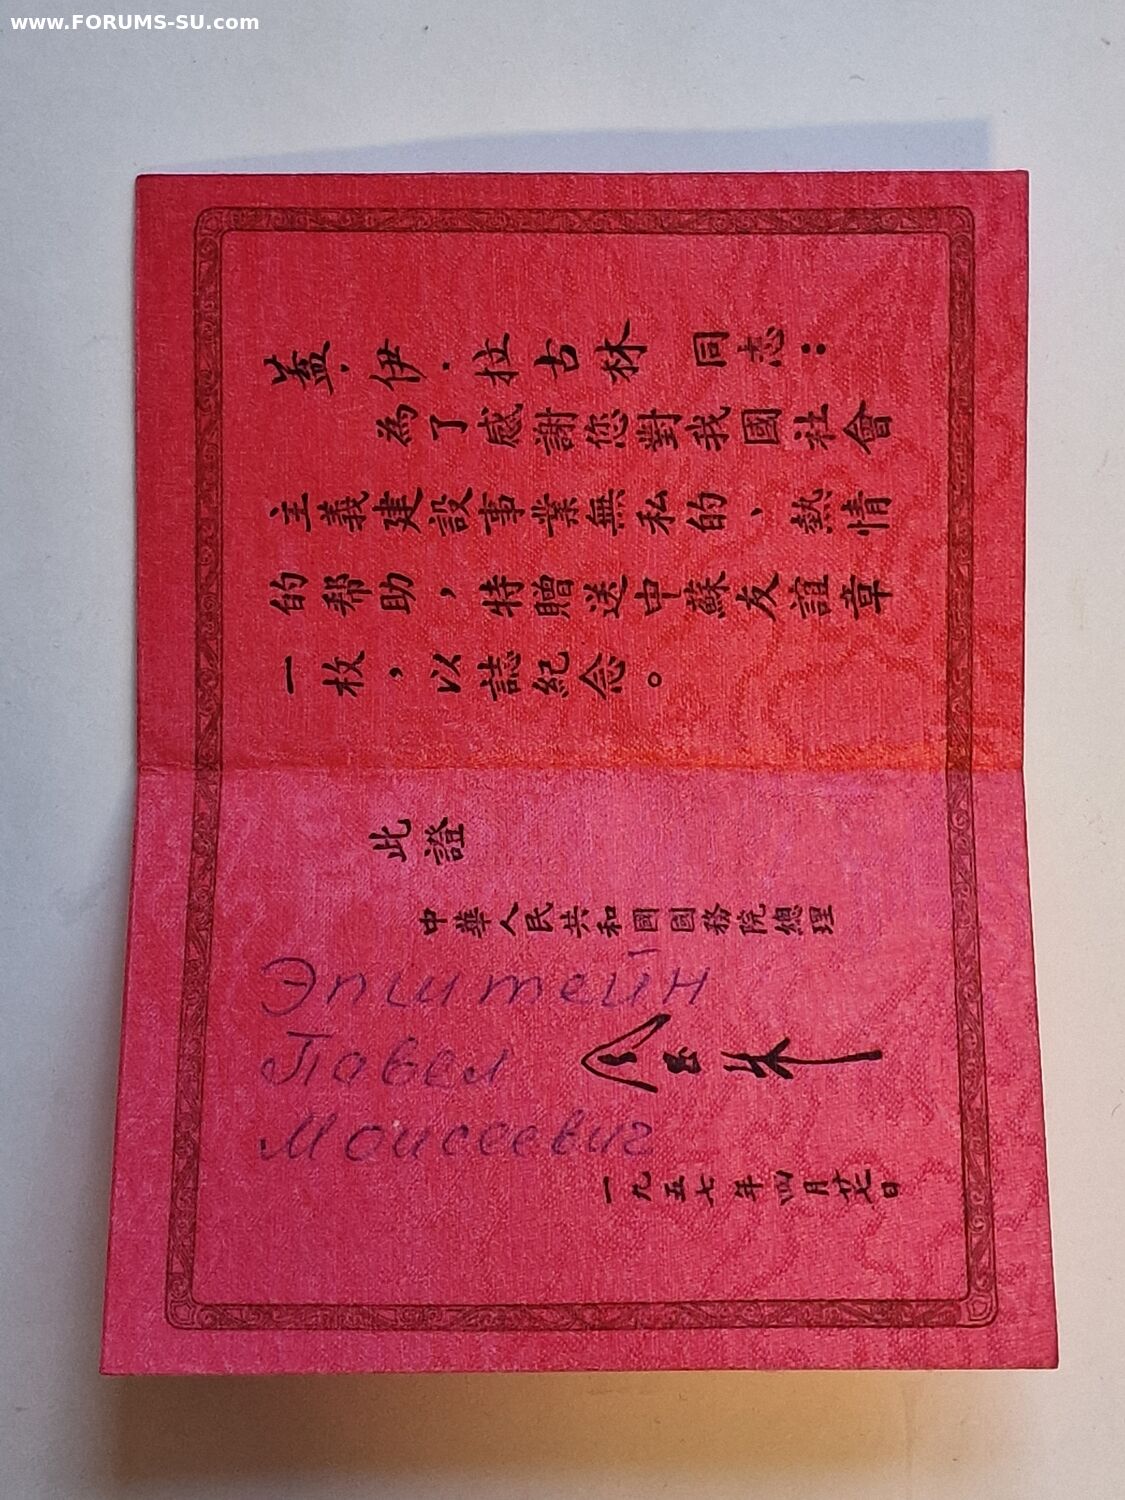 www.FORUMS-SU.com
蓋·伊·拉古林 同志：
為了感謝您對我國社會
主義建設事業無私的、熱情
的帮助，特贈送中蘇友誼章
一枚，以誌紀念。
此證
中華人民共和國國務院總理
Эпштейн
Павел
Моисеевич
周恩来
一九五七年四月廿七日